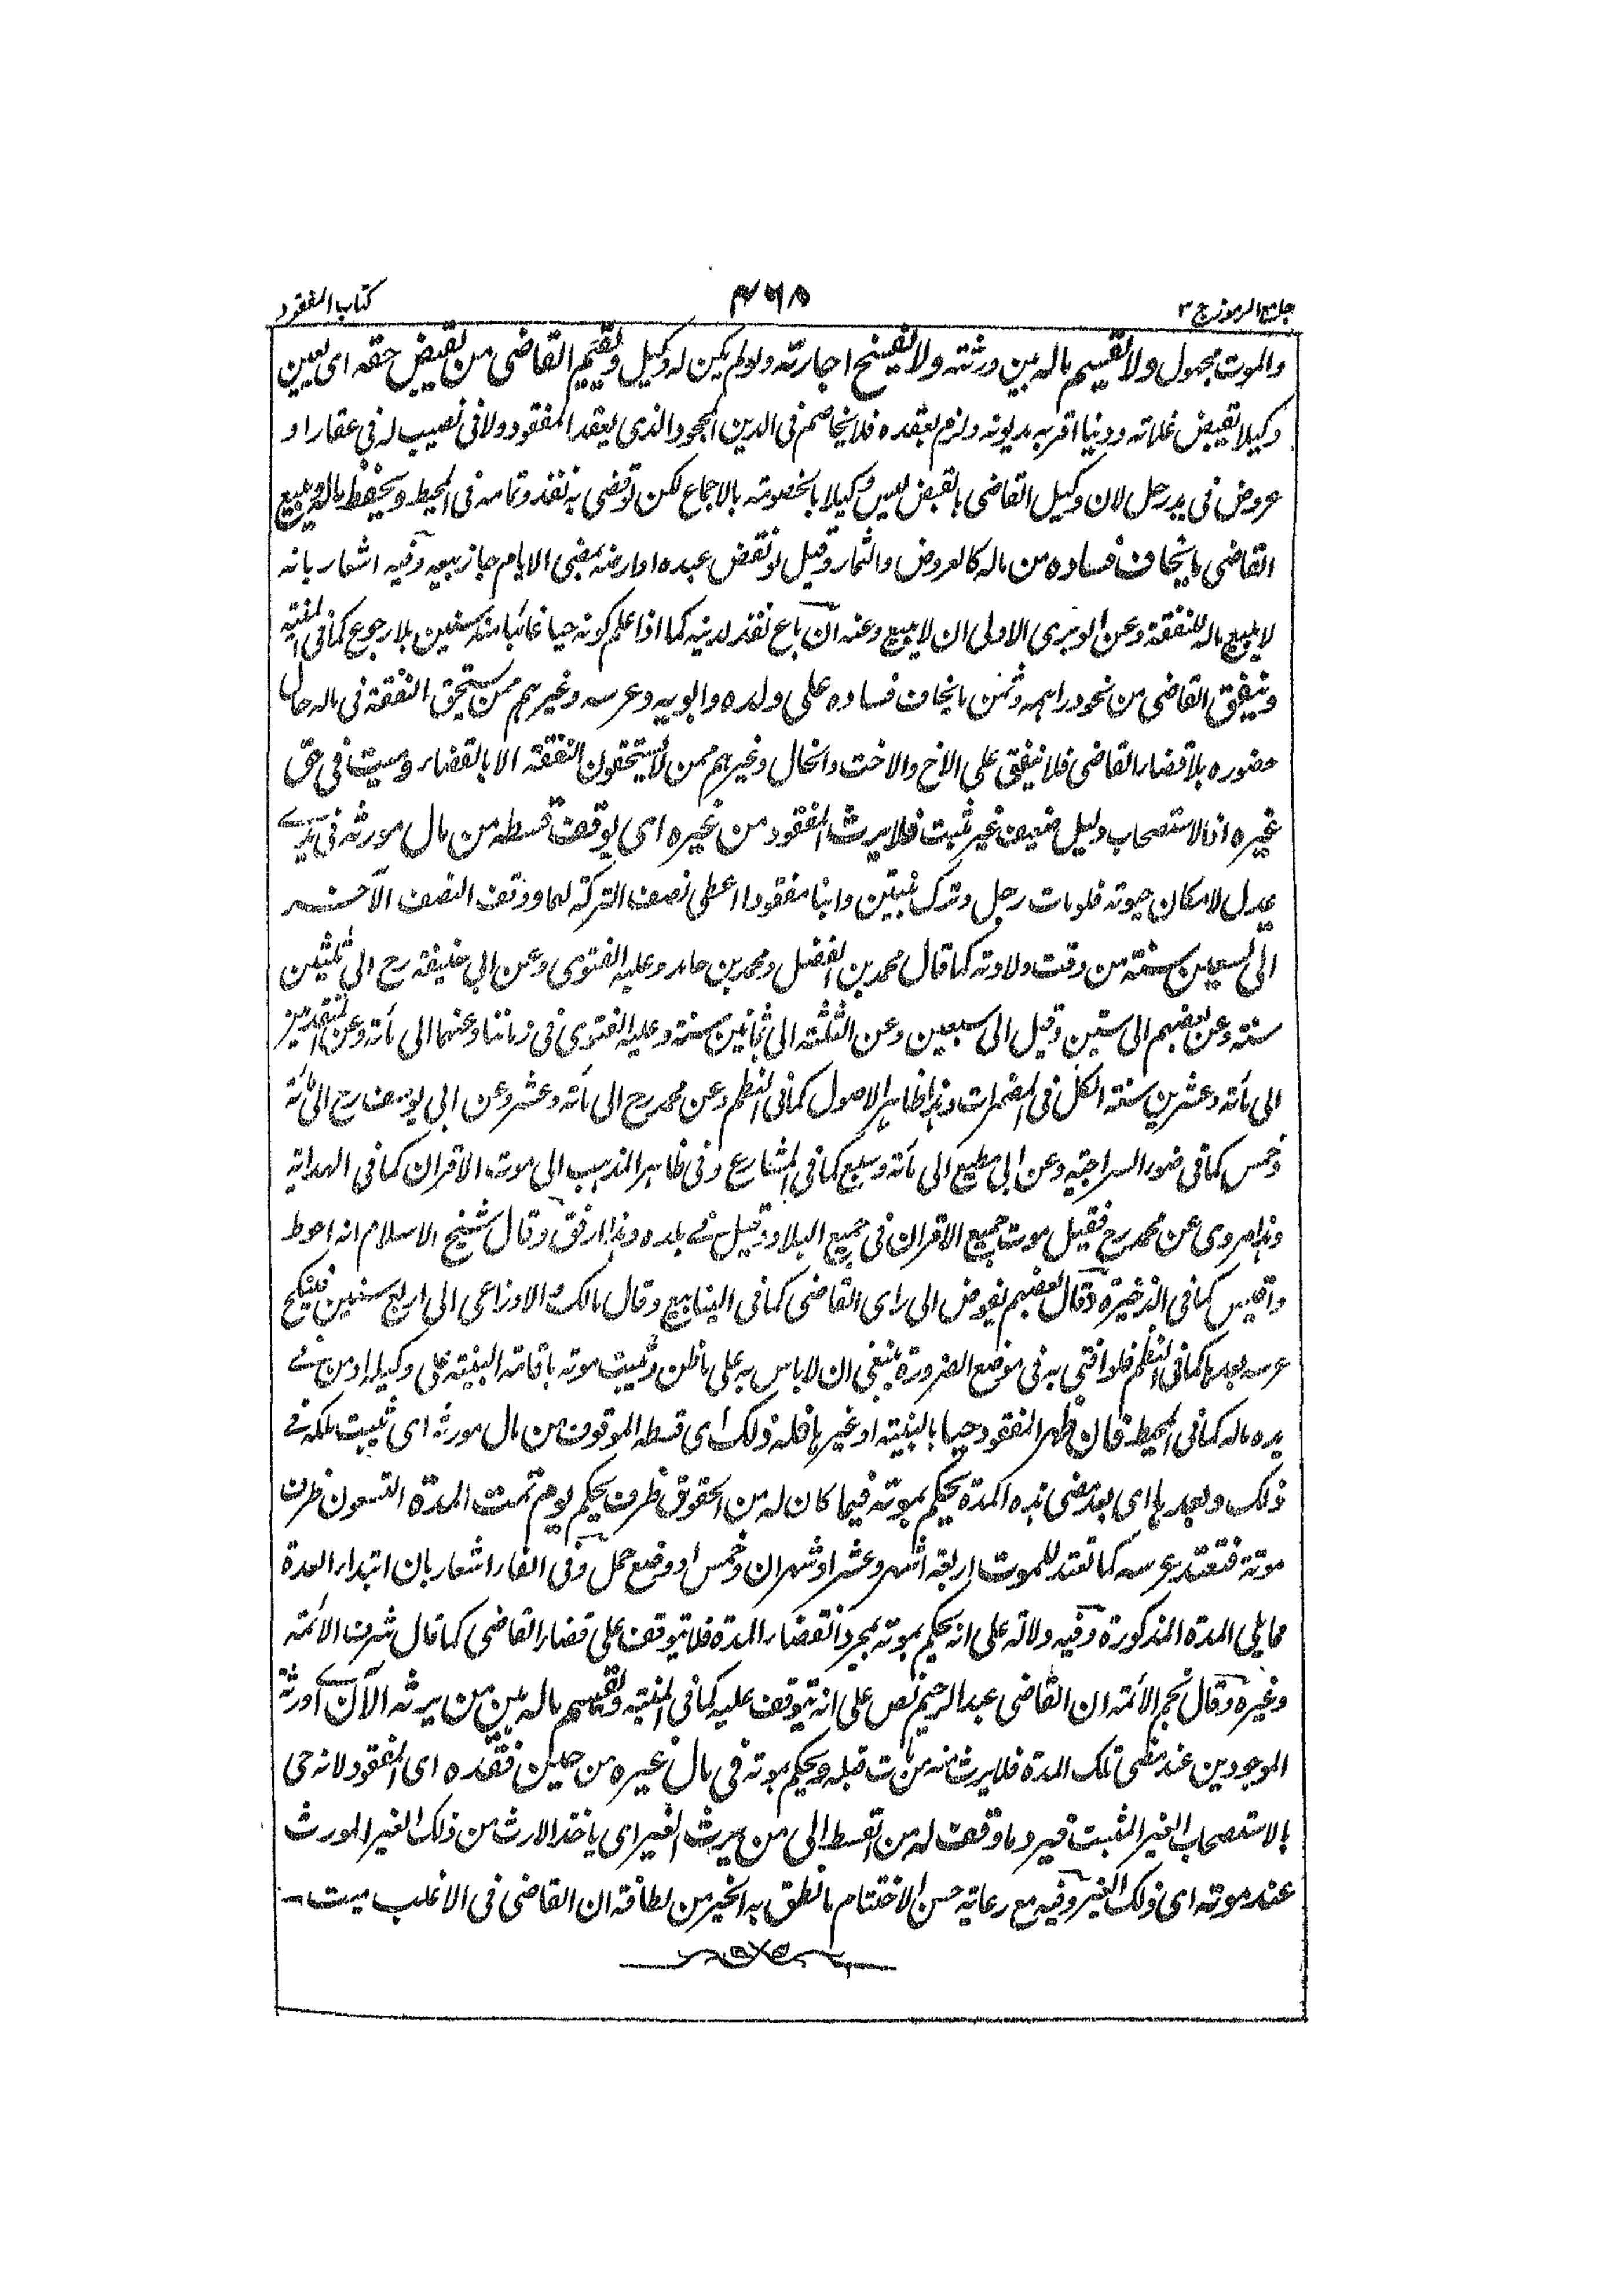 جامع الرموز ج ٣
٤٦٨
كتاب المفقود
والموت مجهول ولا تقسيم ماله بين ورثته ولا تفسخ اجارته ولو لم يكن له وكيل ويقيم القاضى من يقبض حقه اى يعين
وكيلا بقبض غلاته ودينا اقر به مديونه ولزم بعقده فلا يخاصم فى الدين المجحود الذى بعقد المفقود ولا فى نصيب له فى عقار او
عروض فى يد رجل لان وكيل القاضى بالقبض ليس وكيلا بالخصومة بالاجماع لكن لو قضى به نفذ وتمامه فى المحيط ويحفظ ماله ويبيع
القاضى ما يخاف فساده من ماله كالعروض والثمار وقيل لو نقص عبده او ارضه بمضى الايام جاز بيعه وفيه اشعار بانه
لا يبيع ماله للنفقة وعن الوبرى الاولى ان لا يبيع وعنه ان باع نفذ لدينه كما اذا علم كونه حيا غائبا منذ سنين بلا رجوع كما فى المنية
وينفق القاضى من نحو دراهمه وثمن ما يخاف فساده على ولده وابويه وعرسه وغيرهم ممن يستحق النفقة فى ماله حال
حضوره بلا قضاء القاضى فلا ينفق على الاخ والاخت والخال وغيرهم ممن لا يستحقون النفقة الا بالقضاء وميت فى حق
غيره اذ الاستصحاب دليل ضعيف غير مثبت فلا يرث المفقود من غيره اى يوقف قسطه من مال مورثه فى يدے
عدل لامكان حيوته فلو مات رجل وترك بنتين وابنا مفقودا اعطى نصف التركة لهما ووقف النصف الآخر
الى تسعين سنة من وقت ولادته كما قال محمد بن الفضل ومحمد بن حامد وعليه الفتوى وعن ابى حنيفة رح الى ثلثين
سنة وعن بعضهم الى ستين وقيل الى سبعين وعن الثلثة الى ثمانين سنة وعليه الفتوى فى زماننا وعنهما الى مائة وعن المتقدمين
الى مائة وعشرين سنة الكل فى المضمرات وهذا ظاهر الاصول كما فى النظم وعن محمد رح الى مائة وعشر وعن ابى يوسف رح الى مائة
وخمس كما فى ضوء السراجية وعن ابى مطيع الى مائة وسبع كما فى المشارع وفى ظاهر المذهب الى موت الاقران كما فى الهداية
وهذا مروى عن محمد رح فقيل موت جميع الاقران فى جميع البلاد وقيل فے بلده وهذا ارفق وقال شيخ الاسلام انه احوط
واقيس كما فى الذخيرة وقال بعضهم يفوض الى راى القاضى كما فى الينابيع وقال مالك والاوزاعى الى اربع سنين فتنكح
عرسه بعدها كما فى النظم فلو افتى به فى موضع الضرورة ينبغى ان لا باس به على ما ظن ويثبت موته باقامة البينة على وكيله او من فے
يده ماله كما فى المحيط فان ظهر المفقود حيا بالبينة او غيرها فله ذلك اى قسطه الموقوف من مال مورثه اى يثبت ملكه فے
ذلك وبعدها اى بعد مضى هذه المدة يحكم بموته فيما كان له من الحقوق ظرف يحكم يوم تمت المدة التسعون ظرف
موته فتعتد عرسه كما تعتد للموت اربعة اشهر وعشر او شهران وخمس او وضع حمل وفى الفاء اشعار بان ابتداء العدة
مما يلى المدة المذكورة وفيه دلالة على انه يحكم بموته بمجرد انقضاء المدة فلا يتوقف على قضاء القاضى كما قال شرف الائمة
وغيره وقال نجم الائمة ان القاضى عبد الرحيم نص على انه يتوقف عليه كما فى المنية ويقسم ماله بين من يرثه الآن اے ورثة
الموجودين عند مضى تلك المدة فلا يرث منه من مات قبله ويحكم بموته فى مال غيره من حين فقده اى المفقود لانه حى
بالاستصحاب الغير المثبت فيرد ما وقف له من القسط الى من يرث الغير اى ياخذ الارث من ذلك الغير المورث
عند موته اى ذلك الغير وفيه مع رعاية حسن الاختتام ما نطق به الخير من لطافة ان القاضى فى الاغلب ميت